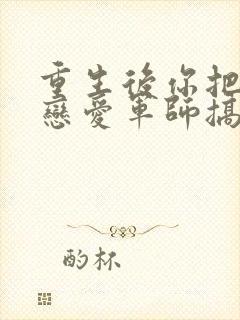 重生後你把
戀愛軍師搞
酌杯